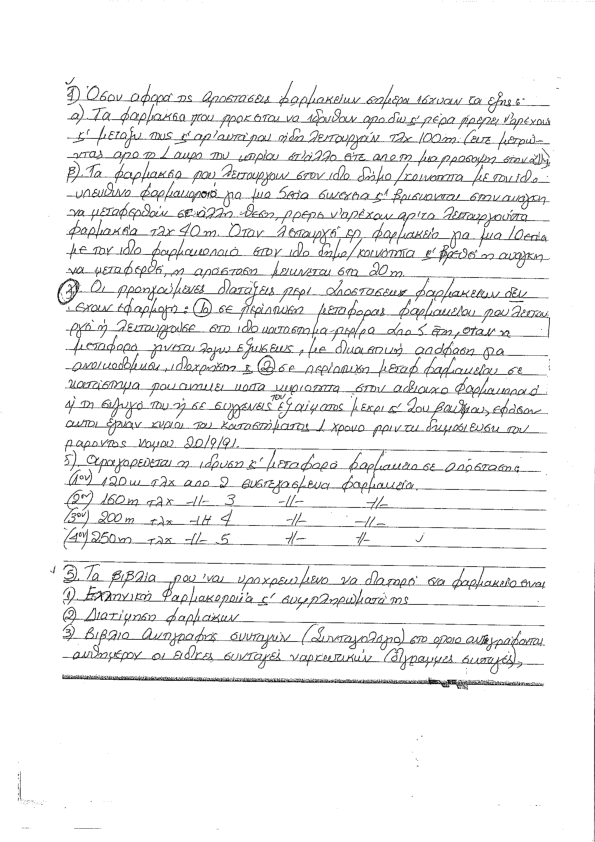 1) Όσον αφορά της αποστάσεις φαρμακείων σήμερα ισχυαν τα εξης ε
α) Τα φαρμακεια που προκειται να ιδρυθουν απο δω κ' περα πρεπει ν'απεχουν
κ' μεταξυ τους κ' απ'αυτα που ηδη λειτουργουν τλχ 100m. (ειτε μετρων-
τας απο το 1 ακρο του κτιριου στο αλλο ειτε απο τη μια προσοψη στην αλλη
β) Τα φαρμακεια που λειτουργουν στον ιδιο δημο/κοινοτητα με τον ιδιο
υπευθυνο φαρμακοποιό για μια 5ετια συνεχεια κ' βρισκονται στην αναγκη
να μεταφερθούν σε άλλη θεση, πρεπει ν'απεχουν απ'τα λειτουργούντα
φαρμακεια τλχ 40m. Οταν λειτουργει εν φαρμακείο για μια 10ετία
με τον ιδιο φαρμακοποιό στον ιδιο δημο/κοινοτητα κ' βρεθει η αναγκη
να μεταφερθει, η αποσταση μειωνεται στα 20m.
Οι προηγούμενες διατάξεις περι αποστασεως φαρμακειων δεν
εχουν εφαρμογη: 1) σε περιπτωση μεταφορας φαρμακείου που λειτου-
ργεί ή λειτουργουσε στο ιδιο καταστημα περρα απο 5 ετη, οταν η
μεταφορα γινεται λογω εξωσεως, με δικαστικη απόφαση για
ανοικοδομηση, ιδιοχρηση κ' 2) σε περιπτωση μεταφ φαρμακειου σε
καταστημα που ανηκει κατα κυριοτητα στον αδειουχο φαρμακοποιό
ή τη συζυγό του ή σε συγγενεις του εξ αίματος μεχρι κ' 2ου βαθμου, εφόσον
αυτοι εγιναν κυριοι του καταστήματος 1 χρονο πριν τη δημοσιευση του
παροντος νομου 20/9/91.
5) Απαγορευεται η ιδρυση κ' μεταφορά φαρμακειο σε αποσταση
(1ον) 120m τλχ απο 2 συστεγασμενα φαρμακεια.
(2ον) 160m τλχ -//- 3 -//- -//-
(3ον) 200m τλχ -//- 4 -//- -//-
(4ον) 250m τλχ -//- 5 -//- -//-
3. Τα βιβλια που 'ναι υποχρεωμενο να διατηρεί ενα φαρμακειο ειναι
1) Ελληνική Φαρμακοποιία κ' συμπληρωματα της
2) Διατίμηση φαρμάκων
3) Βιβλιο Αντιγραφης συνταγων (Συνταγολόγιο) στο οποιο αντιγράφονται
αυθημερον οι ειδικες συνταγές ναρκωτικών (δίγραμμες συνταγές),